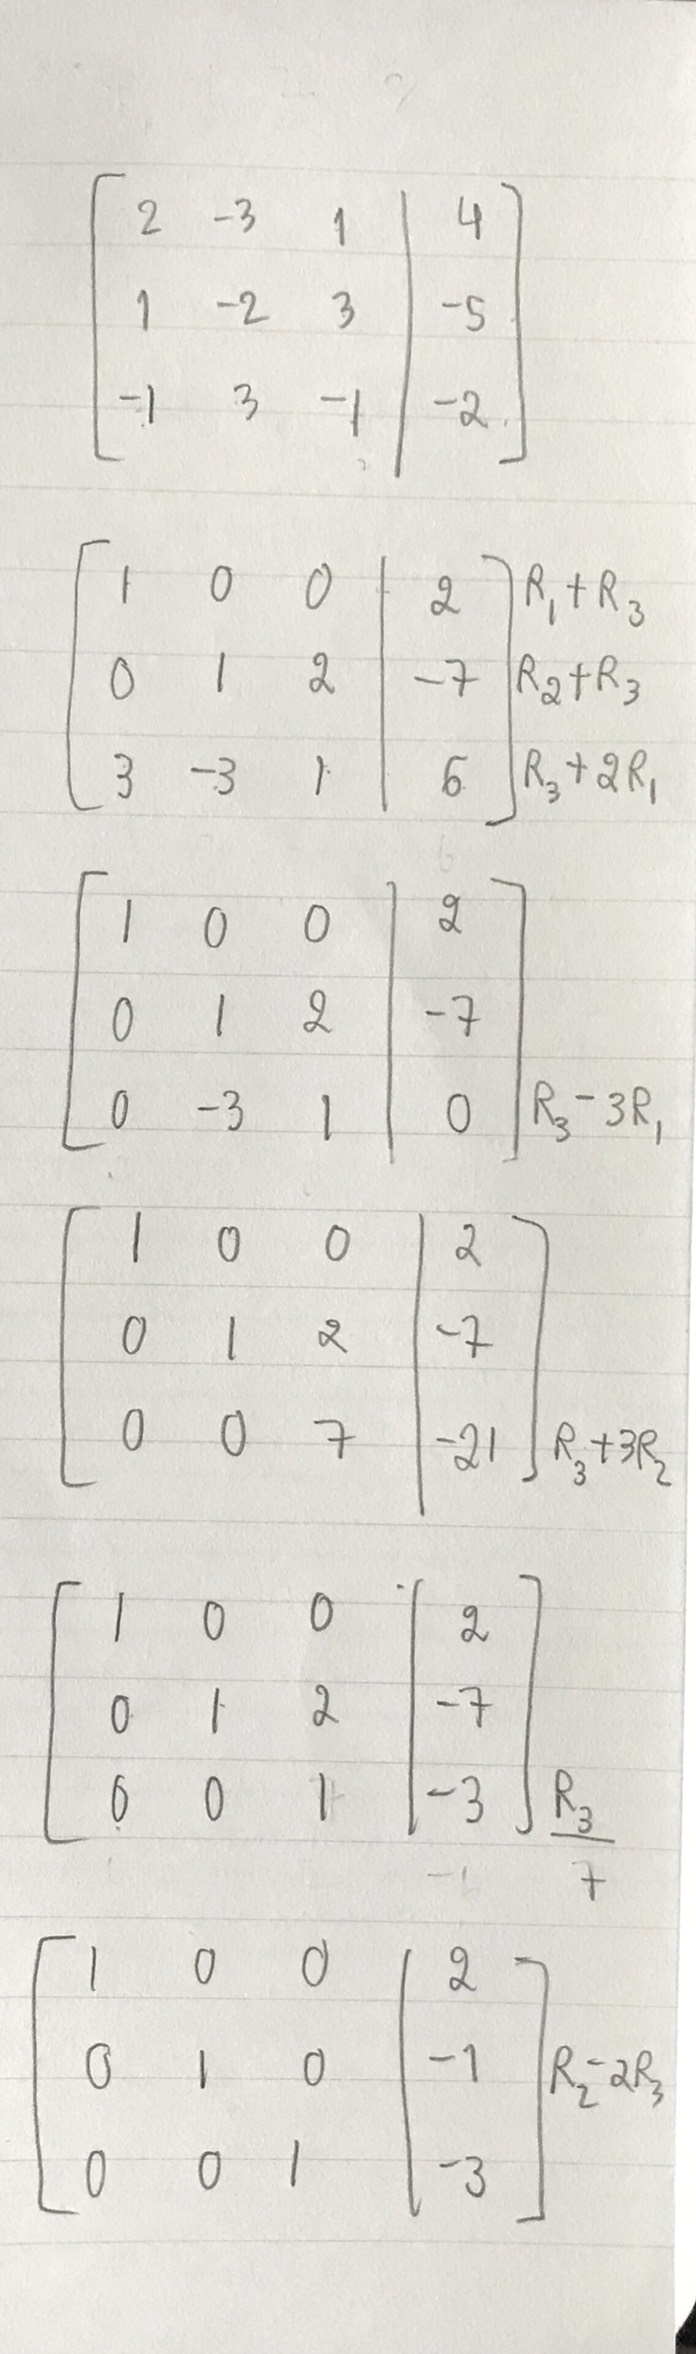 2 -3 1 | 4
1 -2 3 | -5
-1 3 -1 | -2
1 0 0 | 2 R₁+R₃
0 1 2 | -7 R₂+R₃
3 -3 1 | 6 R₃+2R₁
1 0 0 | 2
0 1 2 | -7
0 -3 1 | 0 R₃-3R₁
1 0 0 | 2
0 1 2 | -7
0 0 7 | -21 R₃+3R₂
1 0 0 | 2
0 1 2 | -7
0 0 1 | -3 R₃
7
1 0 0 | 2
0 1 0 | -1 R₂-2R₃
0 0 1 | -3